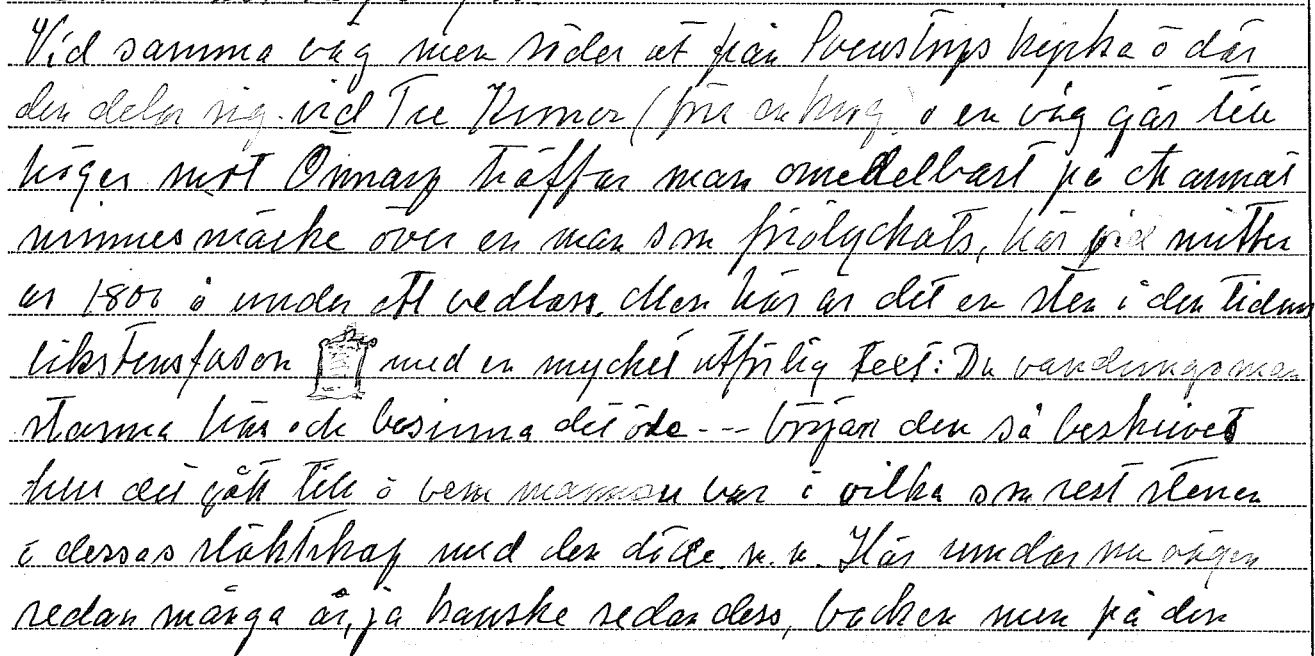 Vid samma väg men söder ut från Svenstorps kyrka o där
den delar sig vid Tre Kronor (förr en krog) o en väg går till
höger mot Önnarp träffar man omedelbart på ett annat
minnesmärke över en man som förolyckats, här vid mitten
av 1800 å under ett vedlass. Men här är det en sten i den tidens
likstensfason med en mycket utförlig text: Du vandringsman
stanna här och besinna ditt öde --- börjar den så beskrives
hur det gått till o vem mannen var o vilka som rest stenen
o dessas släktskap med den döde. Här rundar nu vägen
redan många år, ja kanske redan dess, backen men på den